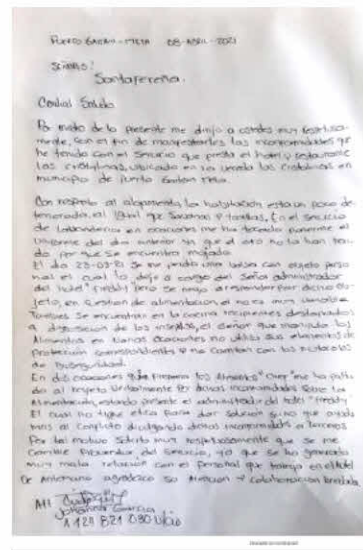 PUERTO GAITAN - META 08-ABRIL-2021
SEÑORES:
Santafereña.
Cordial Saludo
Por medio de la presente me dirijo a ustedes muy respetuosa-
mente, con el fin de manifestarles las inconformidades que
he tenido con el servicio que presta el hotel y restaurante
Las cristalinas, ubicado en la vereda las cristalinas en
municipio de puerto Gaitan Meta.
Con respecto al alojamiento la habitación esta un poco de-
teriorada, al igual que sabanas y toallas, En el servicio
de Labanderia en ocaciones me ha tocado ponerme el
uniforme del dia anterior ya que el otro no lo han
do por que se encuentra mojado.
El dia 23-03-21 se me perdio una bolsa con objeto perso
nal el cual lo deje a cargo del señor administrador
del hotel "Freddy" pero se nego a responder por dicho ob-
jeto, en cuestion de alimentacion el no es muy variable
Tambien se encuentran en la cocina recipientes destapados
a disposicion de los insectos, el señor que manipula los
Alimentos en varias ocaciones no utiliza sus elementos de
protección correspondiente y no cuentan con los protocolos
de bioseguridad.
En dos ocasiones prepara los Alimentos me ha falta-
do al respeto verbalmente por dichas inconformidades sobre la
Alimentación, estando presente el administrador del hotel "Freddy"
El cual no tiene etica para dar solución sino que ayuda
mas al conflicto divulgando dichas inconformidades a terceros
Por tal motivo solicito muy respetuosamente que se me
cambie proveedor del servicio, ya que se ha generado
muy mala relación con el personal que trabaja en el hotel
De Antemano agradesco su Atencion y colaboracion brindada
Att
Johanna Garcia
1 121 821 080 V/cio